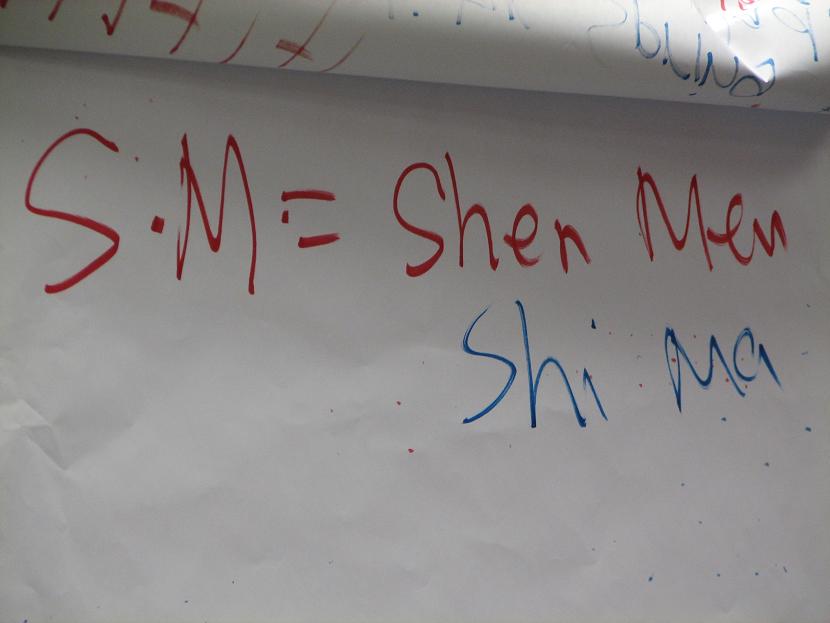 S.M = Shen Men
Shi Ma